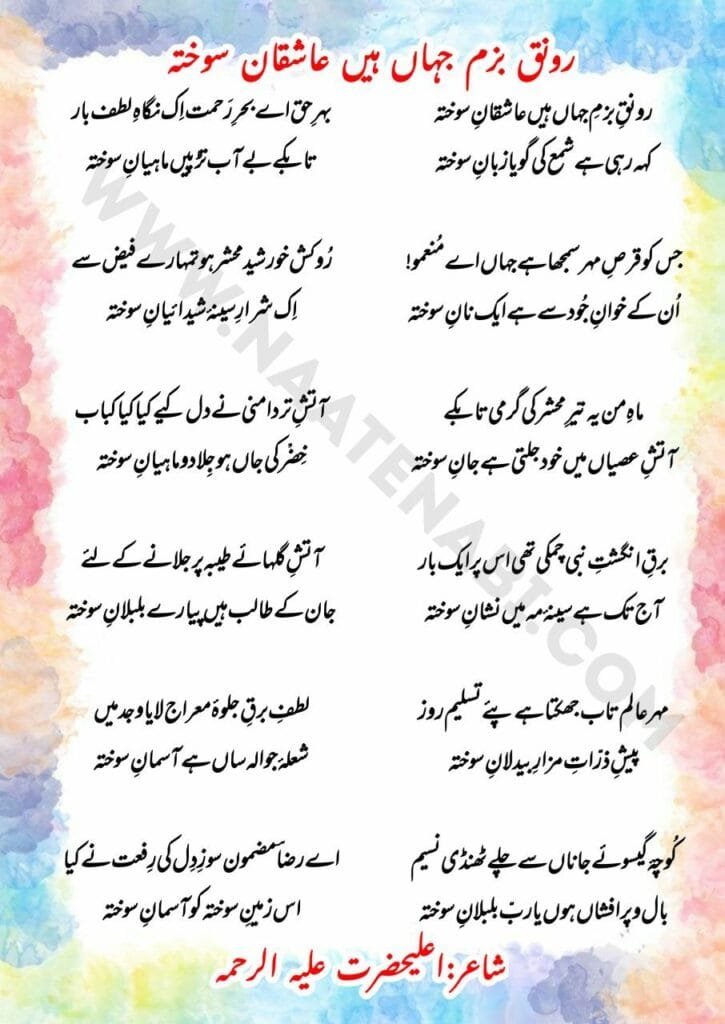 رونق بزم جہاں ہیں عاشقان سوختہ
رونقِ بزمِ جہاں ہیں عاشقانِ سوختہ
کہہ رہی ہے شمع کی گویا زبانِ سوختہ
جس کو قرصِ مہر سمجھا ہے جہاں اے مُنعمو!
اُن کے خوانِ جُود سے ہے ایک نانِ سوختہ
ماہِ من یہ تیرِ محشر کی گرمی تابکے
آتشِ عصیاں میں خود جلتی ہے جانِ سوختہ
برقِ انگشتِ نبی چمکی تھی اس پر ایک بار
آج تک ہے سینۂ مہ میں نشانِ سوختہ
مہرِ عالم تاب جھکتا ہے پئے تسلیم روز
پیشِ ذرّاتِ مزارِ بیدلانِ سوختہ
کُوچۂ گیسوئے جاناں سے چلے ٹھنڈی نسیم
بال و پر افشاں ہوں یا ربّ بلبلانِ سوختہ
بہرِ حق اے بحرِ رَحمت اِک نگاہِ لطف بار
تابکے بے آب تڑپیں ماہیانِ سوختہ
رُوکش خورشیدِ محشر ہو تمہارے فیض سے
اِک شرارِ سینۂ شیدائیانِ سوختہ
آتشِ تر دامنی نے دل کیے کیا کیا کباب
خِضْر کی جاں ہو جِلا دو ماہیانِ سوختہ
آتشِ گلہائے طیبہ پر جلانے کے لئے
جان کے طالب ہیں پیارے بلبلانِ سوختہ
لطفِ برقِ جلوۂ معراج لایا وجد میں
شعلۂ جوالہ ساں ہے آسمانِ سوختہ
اے رضاؔ مضمون سوزِ دِل کی رِفعت نے کیا
اس زمینِ سوختہ کو آسمانِ سوختہ
شاعر: اعلیحضرت علیہ الرحمہ
WWW.NAATENABI.COM